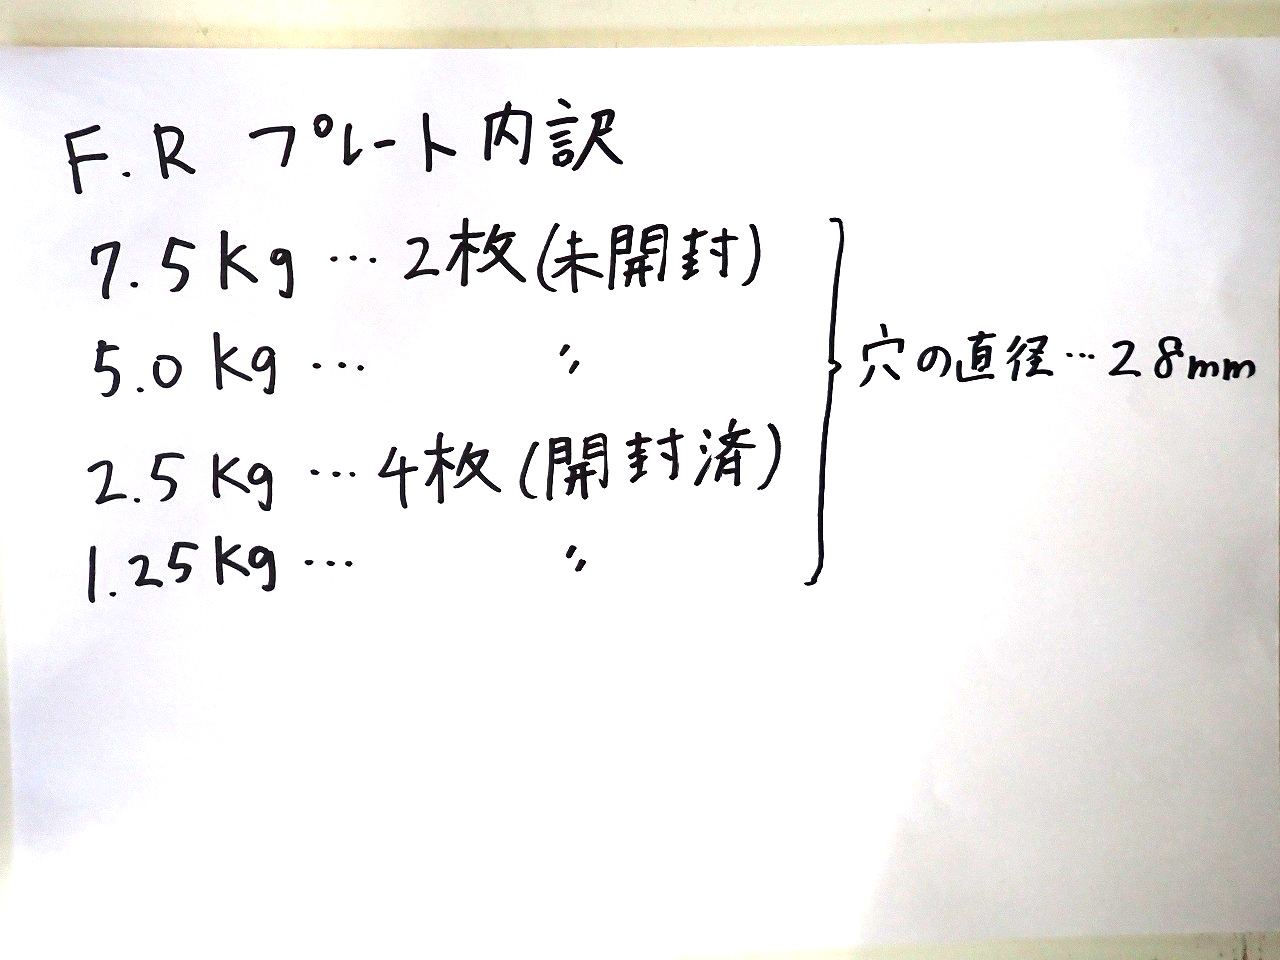 F.R プレート内訳
7.5kg…2枚(未開封)
5.0kg… 〃
穴の直径…28mm
2.5kg…4枚(開封済)
1.25kg… 〃